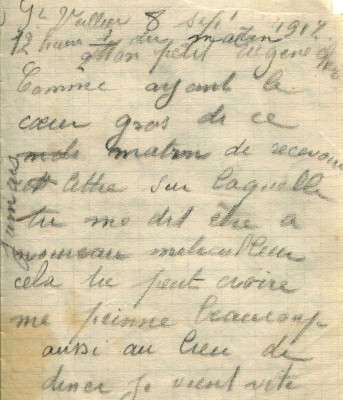 St Vallier 8 sept 1917.
12 heure du matin
mon petit Eugene
Comme ayant le
cœur gros de ce
matin de recevoir
lettre sur laquelle
tu me dit être a
nouveau
cela tu peut croire
me peinne beaucoup
aussi au lieu de
diner je vient vite
jamais